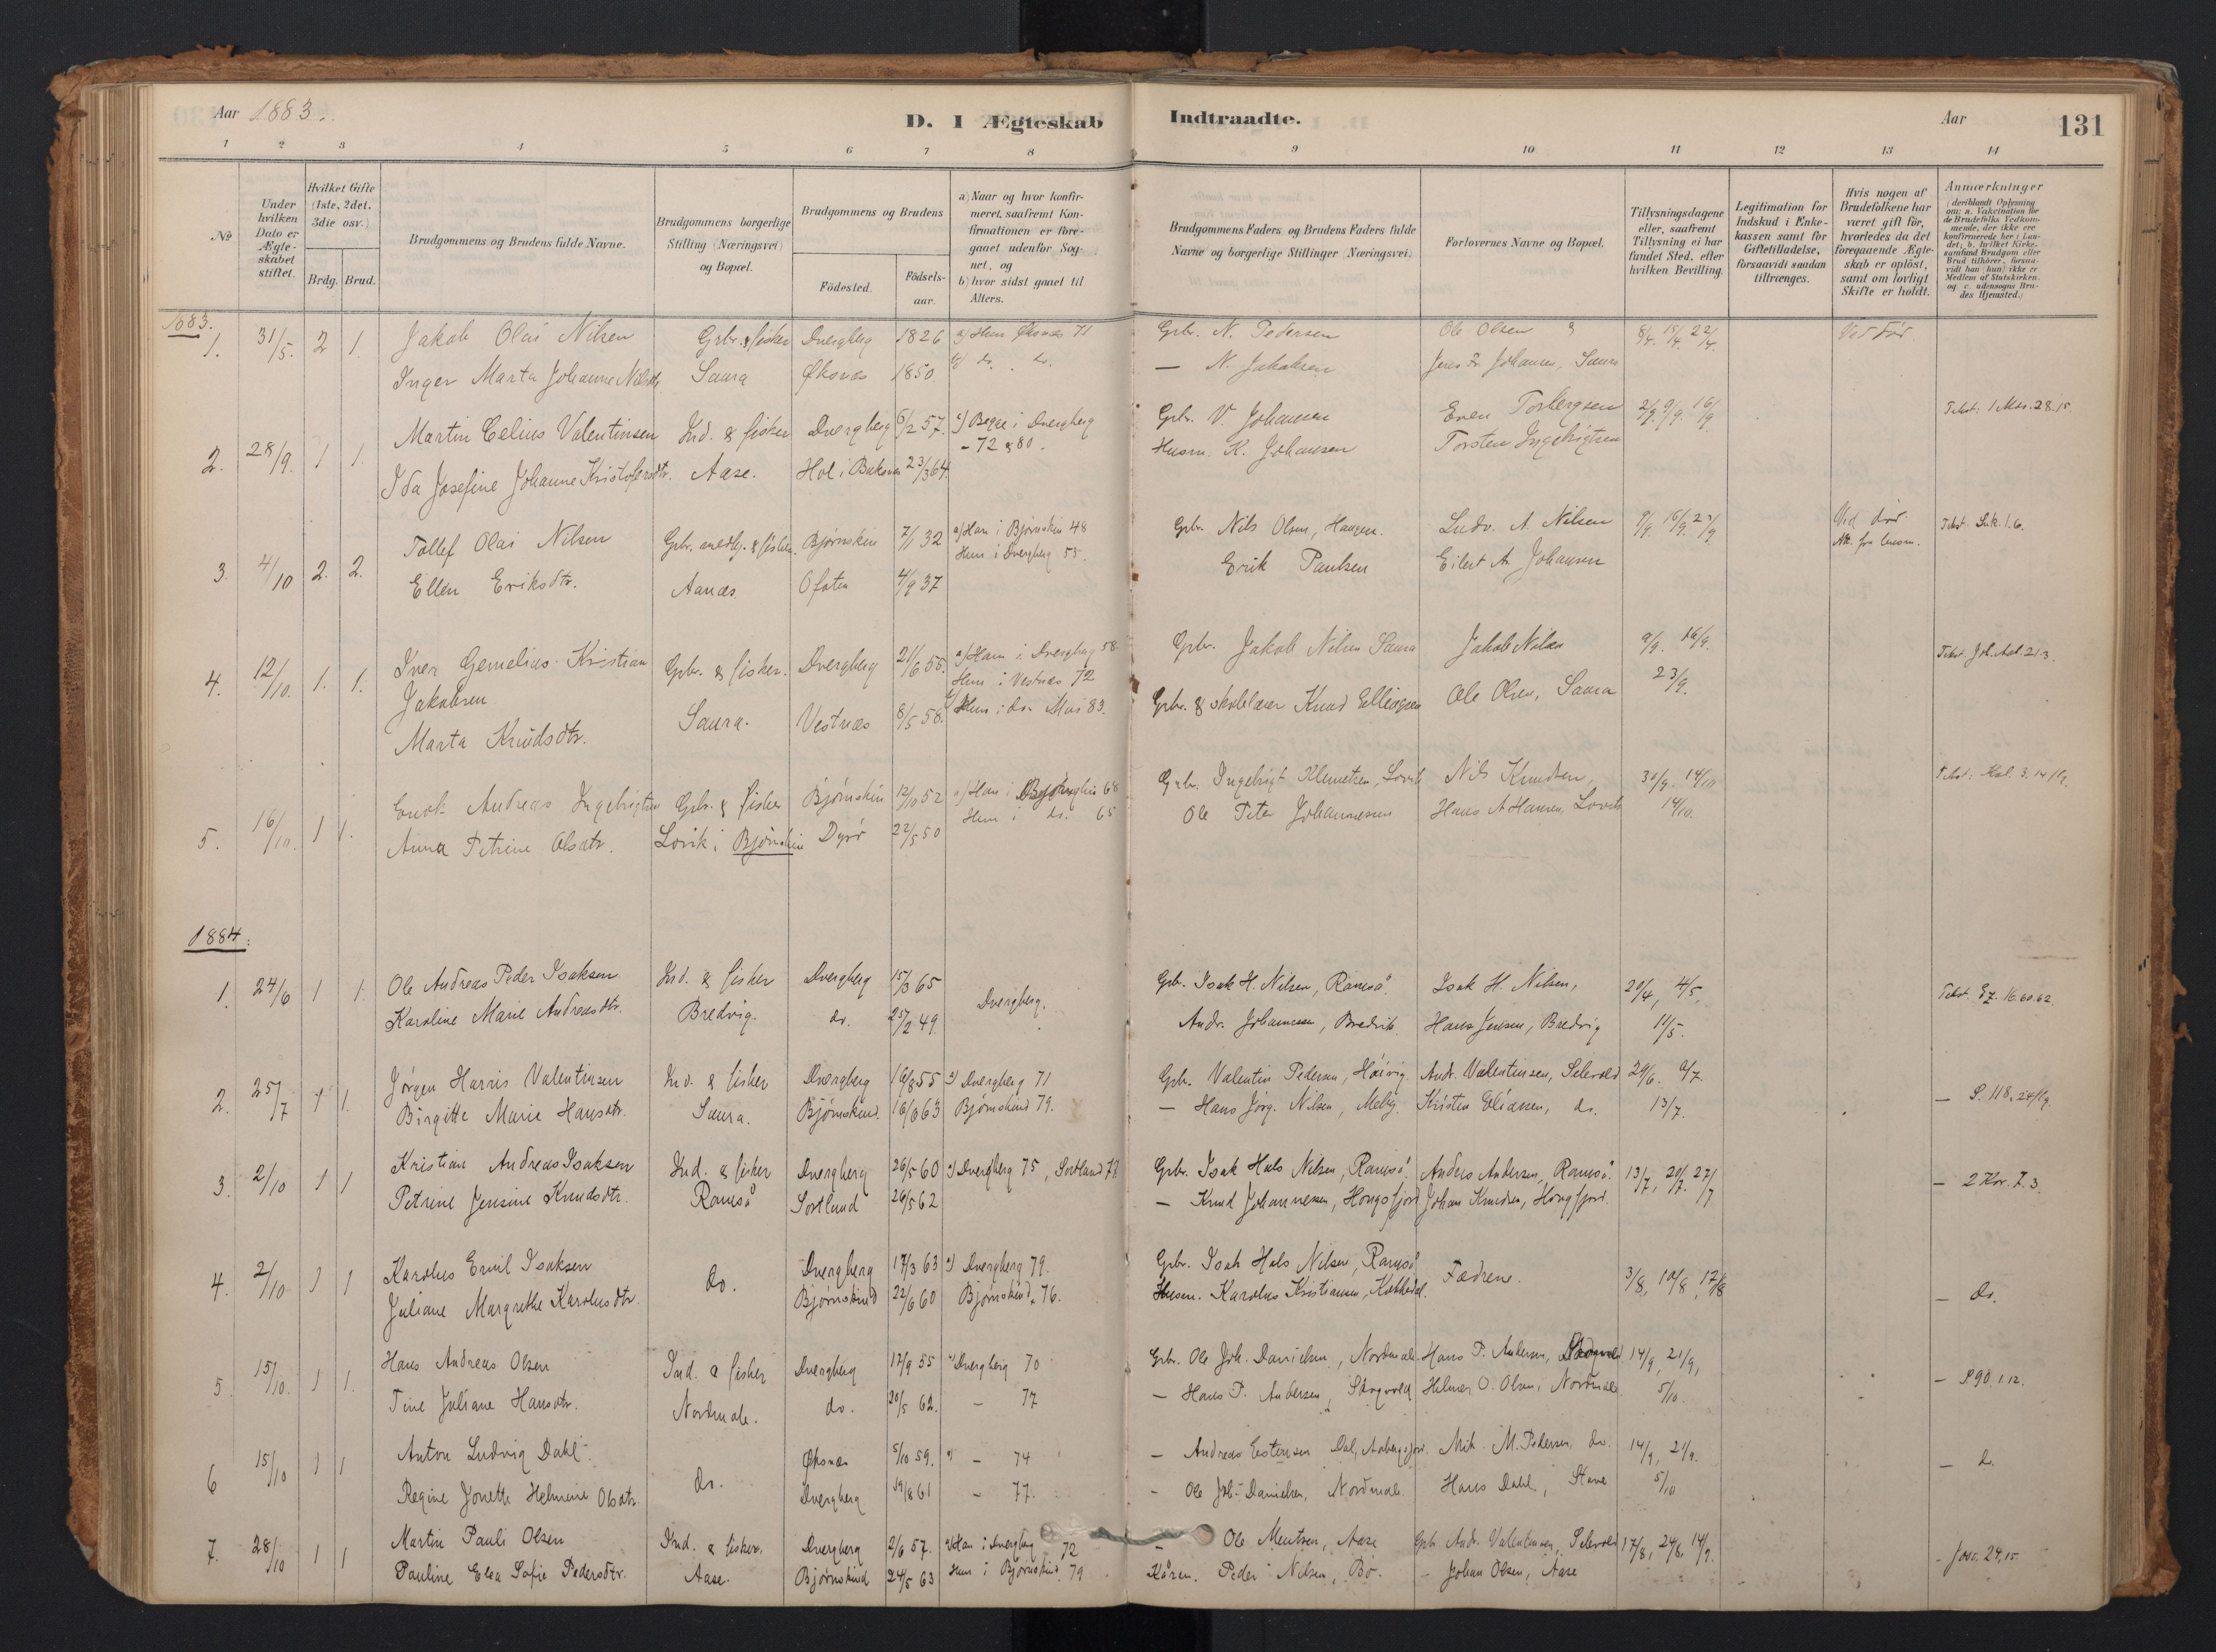 Aar 1883.
D. I Ægteskab
Indtraadte.
Aar
131
1 2 3 4 5 6 7 8 9 10 11 12 13 14
No
Under hvilken Dato er Ægte-skabet stiftet.
Hvilket Gifte (1ste, 2det, 3die osv.)
Brdg. Brud.
Brudgommens og Brudens fulde Navne.
Brudgommens borgerlige Stilling (Næringsvei) og Bopæl.
Brudgommens og Brudens
Födested.
Födsels-aar.
a) Naar og hvor konfir-meret, saafremt Kon-firmationen er fore-gaaet udenfor Sog-net, og
b) hvor sidst gaaet til Alters.
Brudgommens Faders og Brudens Faders fulde Navne og borgerlige Stillinger (Næringsvei).
Forlovernes Navne og Bopæl.
Tillysningsdagene eller, saafremt Tillysning ei har fundet Sted, efter hvilken Bevilling.
Legitimation for Indskud i Enke-kassen samt for Giftetilladelse, forsaavidt saadan tiltrænges.
Hvis nogen af Brudefolkene har været gift för, hvorledes da det foregaaende Ægte-skab er oplöst, samt om lovligt Skifte er holdt.
Anmærkninger (deriblandt Oplysning om: a. Vakcination for de Brudefolks Vedkom-mende, der ikke ere konfirmerede her i Lan-det; b. hvilket Kirke-samfund Brudgom eller Brud tilhörer, forsaa-vidt han (hun) ikke er Medlem af Statskirken, og c. udensogns Bru-des Hjemsted.)
1883.
1. 31/5. 2 1. Jakob Olai Nilsen Grbr. & fisker Dverberg 1826 a) Hun Øksnæs 71 Grbr. N. Pedersen Ole Olsen & 8/4. 15/4. 22/4. Ved död.
Inger Marta Johanne Nilsdtr. Saura Øksnæs 1850. b) do. do. — N. Jakobsen Jens P. Johansen, Saura
2. 28/9. 1 1. Martin Celius Valentinsen Ind. & fisker Dverberg 6/2 57. a) Begge i Dverberg - 72 & 80. Grbr. V. Johansen Even Torbergsen 2/9. 9/9. 16/9 Tekst: 1 Mos. 28.15.
Ida Josefine Johanne Kristofersdtr. Aase. Hol i Buksnes 23/3 64. Husm. K. Johansen Torsten Ingebrigtsen
3. 4/10 2. 2. Tollef Olai Nilsen Grbr. & fisker. Bjørnskin 7/11 32 a) Han i Bjørnskin 48 Grbr. Nils Olsen, Haugen. Ludv. A. Nilsen 9/9. 16/9. 23/9 Ved död. Tekst. Luk. 1.6.
Ellen Eriksdtr. Aanæs. Ofoten 4/9 37 Hun i Dverberg 55. Erik Paulsen Eilert A. Johansen
4. 12/10. 1. 1. Iver Gemelias Kristian Jakobsen Grbr. & fisker. Dverberg 21/6 55. a) Han i Dverberg 58. Hun i Vestnæs 72 Grbr. Jakob Nilsen Saura Jakob Nilsen 9/9. 16/9.
Marta Knudsdtr. Saura. Vestnæs 8/5 58. b) Hun i do. Mai 83. Grbr. & skolelærer Knud Ellingsen Ole Olsen, Saura 23/9.
5. 16/10. 1 1. Andreas Ingebrigtsen Grbr. & fisker Bjørnskin 12/10 52 a) Han i Bjørnskin 68 Grbr. Ingebrigt Klemetsen, Lovik Nils Knudsen, 30/9. 14/10
Anna Petrine Olsdtr. Lovik i Bjørnskin Dyrö 22/5 50 Hun i do. 65 Ole Peter Johannessen Hans A. Hansen, Lovik 14/10.
1884.
1. 24/6 1 1. Ole Andreas Peder Isaksen Ind. & fisker Dverberg 15/3 65 Dverberg. Grbr. Isak H. Nilsen, Ramså. Isak H. Nilsen, 20/4, 4/5,
Karoline Marie Andreasdtr. Bredvig. do. 25/2 49. Andr. Johannessen, Bredvik. Hans Jensen, Bredvig 11/5.
2. 25/7 1 1. Jørgen Harris Valentinsen Ind. & fisker Dverberg 16/8 55 a) Dverberg 71 Grbr. Valentin Pedersen, Høivig. Andr. Valentinsen, Selvold 29/6.
Birgitte Marie Hansdtr. Saura. Bjørnskind. 16/6 63 Bjørnskind 79. — Hans Jørg. Nilsen, Melby. Kristen Eliassen, do. 13/7.
3. 2/10 1 1 Kristian Andreas Isaksen Ind. & fisker Dverberg 26/5 60 a) Dverberg 75, Sortland 77. Grbr. Isak Hals Nilsen, Ramså. Anders Andersen, Ramså. 13/7, 20/7. 27/7 — 2 Kor. 7.3.
Petrine Jensine Knudsdtr. Ramså Sortland 26/5 62 — Knud Johannessen, Hongsfjord Johan Knudsen, Hongfjord.
4. 2/10 1 1 Karolus Emil Isaksen do. Dverberg 17/3 63 a) Dverberg 79. Grbr. Isak Hals Nilsen, Ramså Fædrene. 3/8, 10/8, 17/8 — do.
Juliane Margrethe Karolusdtr. Bjørnskind 22/6 60 Bjørnskind, 76. Husm. Karolus Kristiansen,
5. 15/10. 1 1. Hans Andreas Olsen Ind. & fisker Dverberg 12/9 55 a) Dverberg 70 Grbr. Ole Joh. Danielsen, Nordmele. Hans P. Andersen, Skogvold 14/9, 21/9, — S. 90. 1.12.
Tine Juliane Hansdtr. Nordmele. do. 20/5 62. — 77 — Hans P. Andersen, Skogvold Helmer O. Olsen, Nordmele 5/10.
6 15/10 1 1 Anton Ludvig Dahl. do. Øksnæs 5/10 59. a) — 74 — Andreas Estensen Dal, Mik. M. Pedersen, do. 14/9, 21/9. — do.
Regine Jonette Helmine Olsdtr. Dverberg 19/8 61 — 77. — Ole Joh. Danielsen, Nordmele Hans Dahl, Stave 5/10
7. 28/10 1 1 Martin Pauli Olsen Ind. & fisker. Dverberg 2/6 57. a) Han i Dverberg 72 — Ole Mentsen, Aase Grbr. Andr. Valentinsen, Selvold 17/8, 24/8, 14/9. - Jos. 24,15.
Pauline Elea Sofie Pedersdtr. Aase. Bjørnskind 24/5 63 Hun i Bjørnskind 79 Peder Nilsen, Bö. — Johan Olsen, Aase